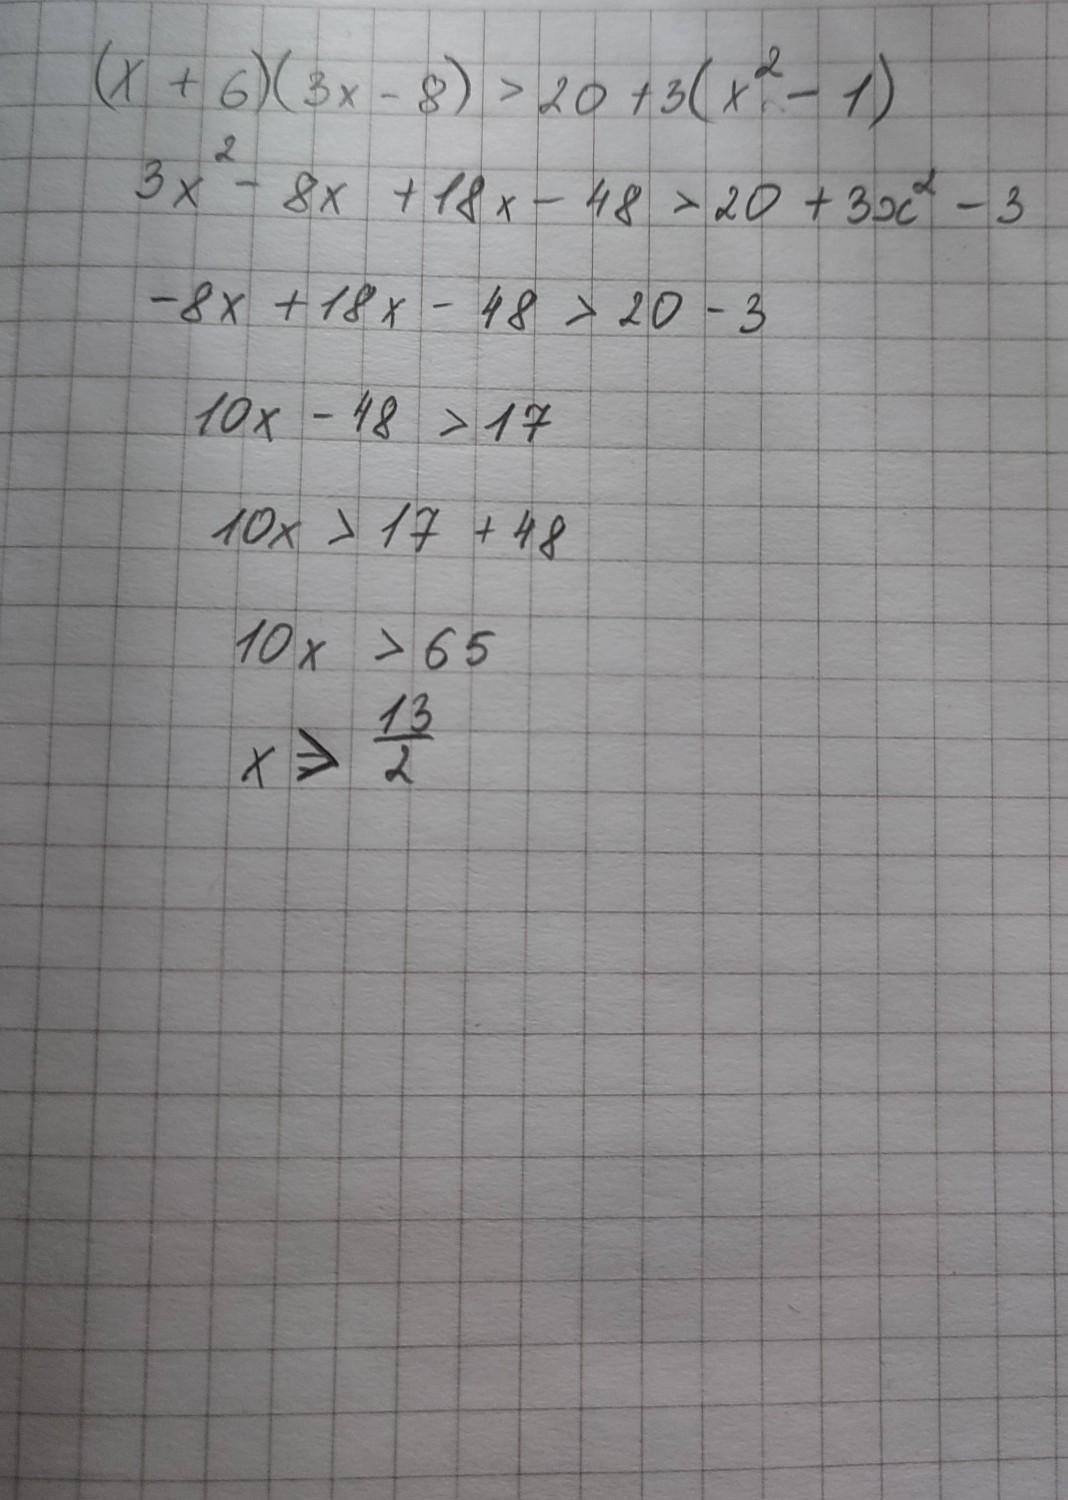 (x + 6)(3x - 8) > 20 + 3(x² - 1)
3x² - 8x + 18x - 48 > 20 + 3x² - 3
-8x + 18x - 48 > 20 - 3
10x - 48 > 17
10x > 17 + 48
10x > 65
x ⩾ 13/2